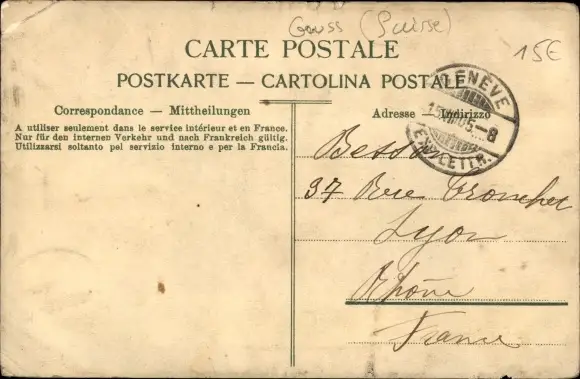 (Suisse)
15€
CARTE POSTALE
POSTKARTE — CARTOLINA POSTALE
Correspondance — Mittheilungen
A utiliser seulement dans le service intérieur et en France.
Nur für den internen Verkehr und nach Frankreich gültig.
Utilizzarsi soltanto pel servizio interno e per la Francia.
Adresse — Indirizzo
GENÈVE
EXP. LETTR.
Besson
37 Rue Tronchet
Lyon
Rhône
France